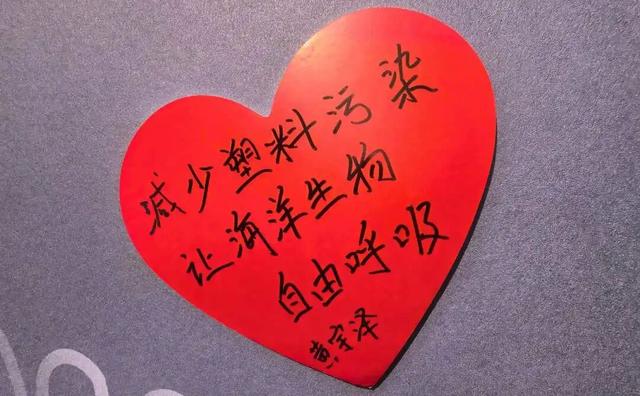 减少塑料污染
让海洋生物
自由呼吸
黄宇泽